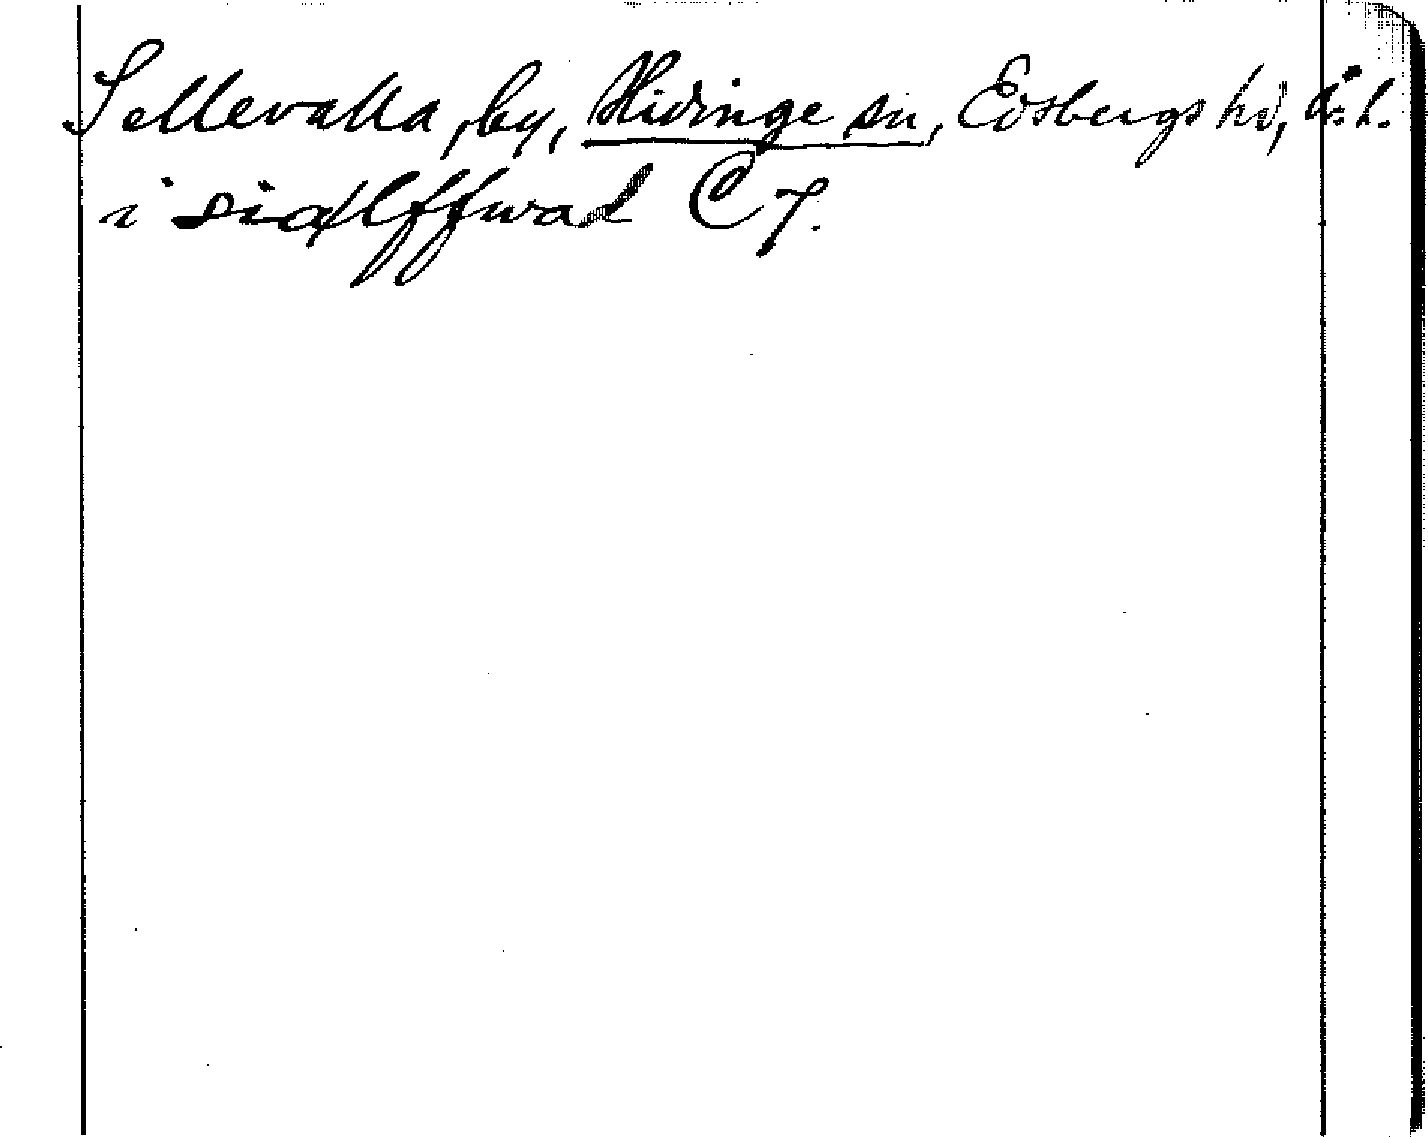 Sellevalla, by, Hidinge sn, Edsbergs hd, Ör. l.
i siælffwal C 7.